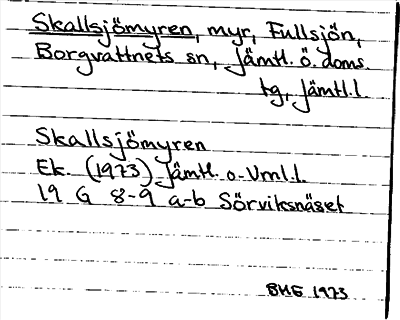 Skallsjömyren, myr, Fullsjön,
Borgvattnets sn, Jämtl. ö. doms.
tg, Jämtl.l.
Skallsjömyren
Ek. (1973) Jämtl. o. Vml.l.
19 G 8-9 a-b Sörviksnäset
BHG 1973